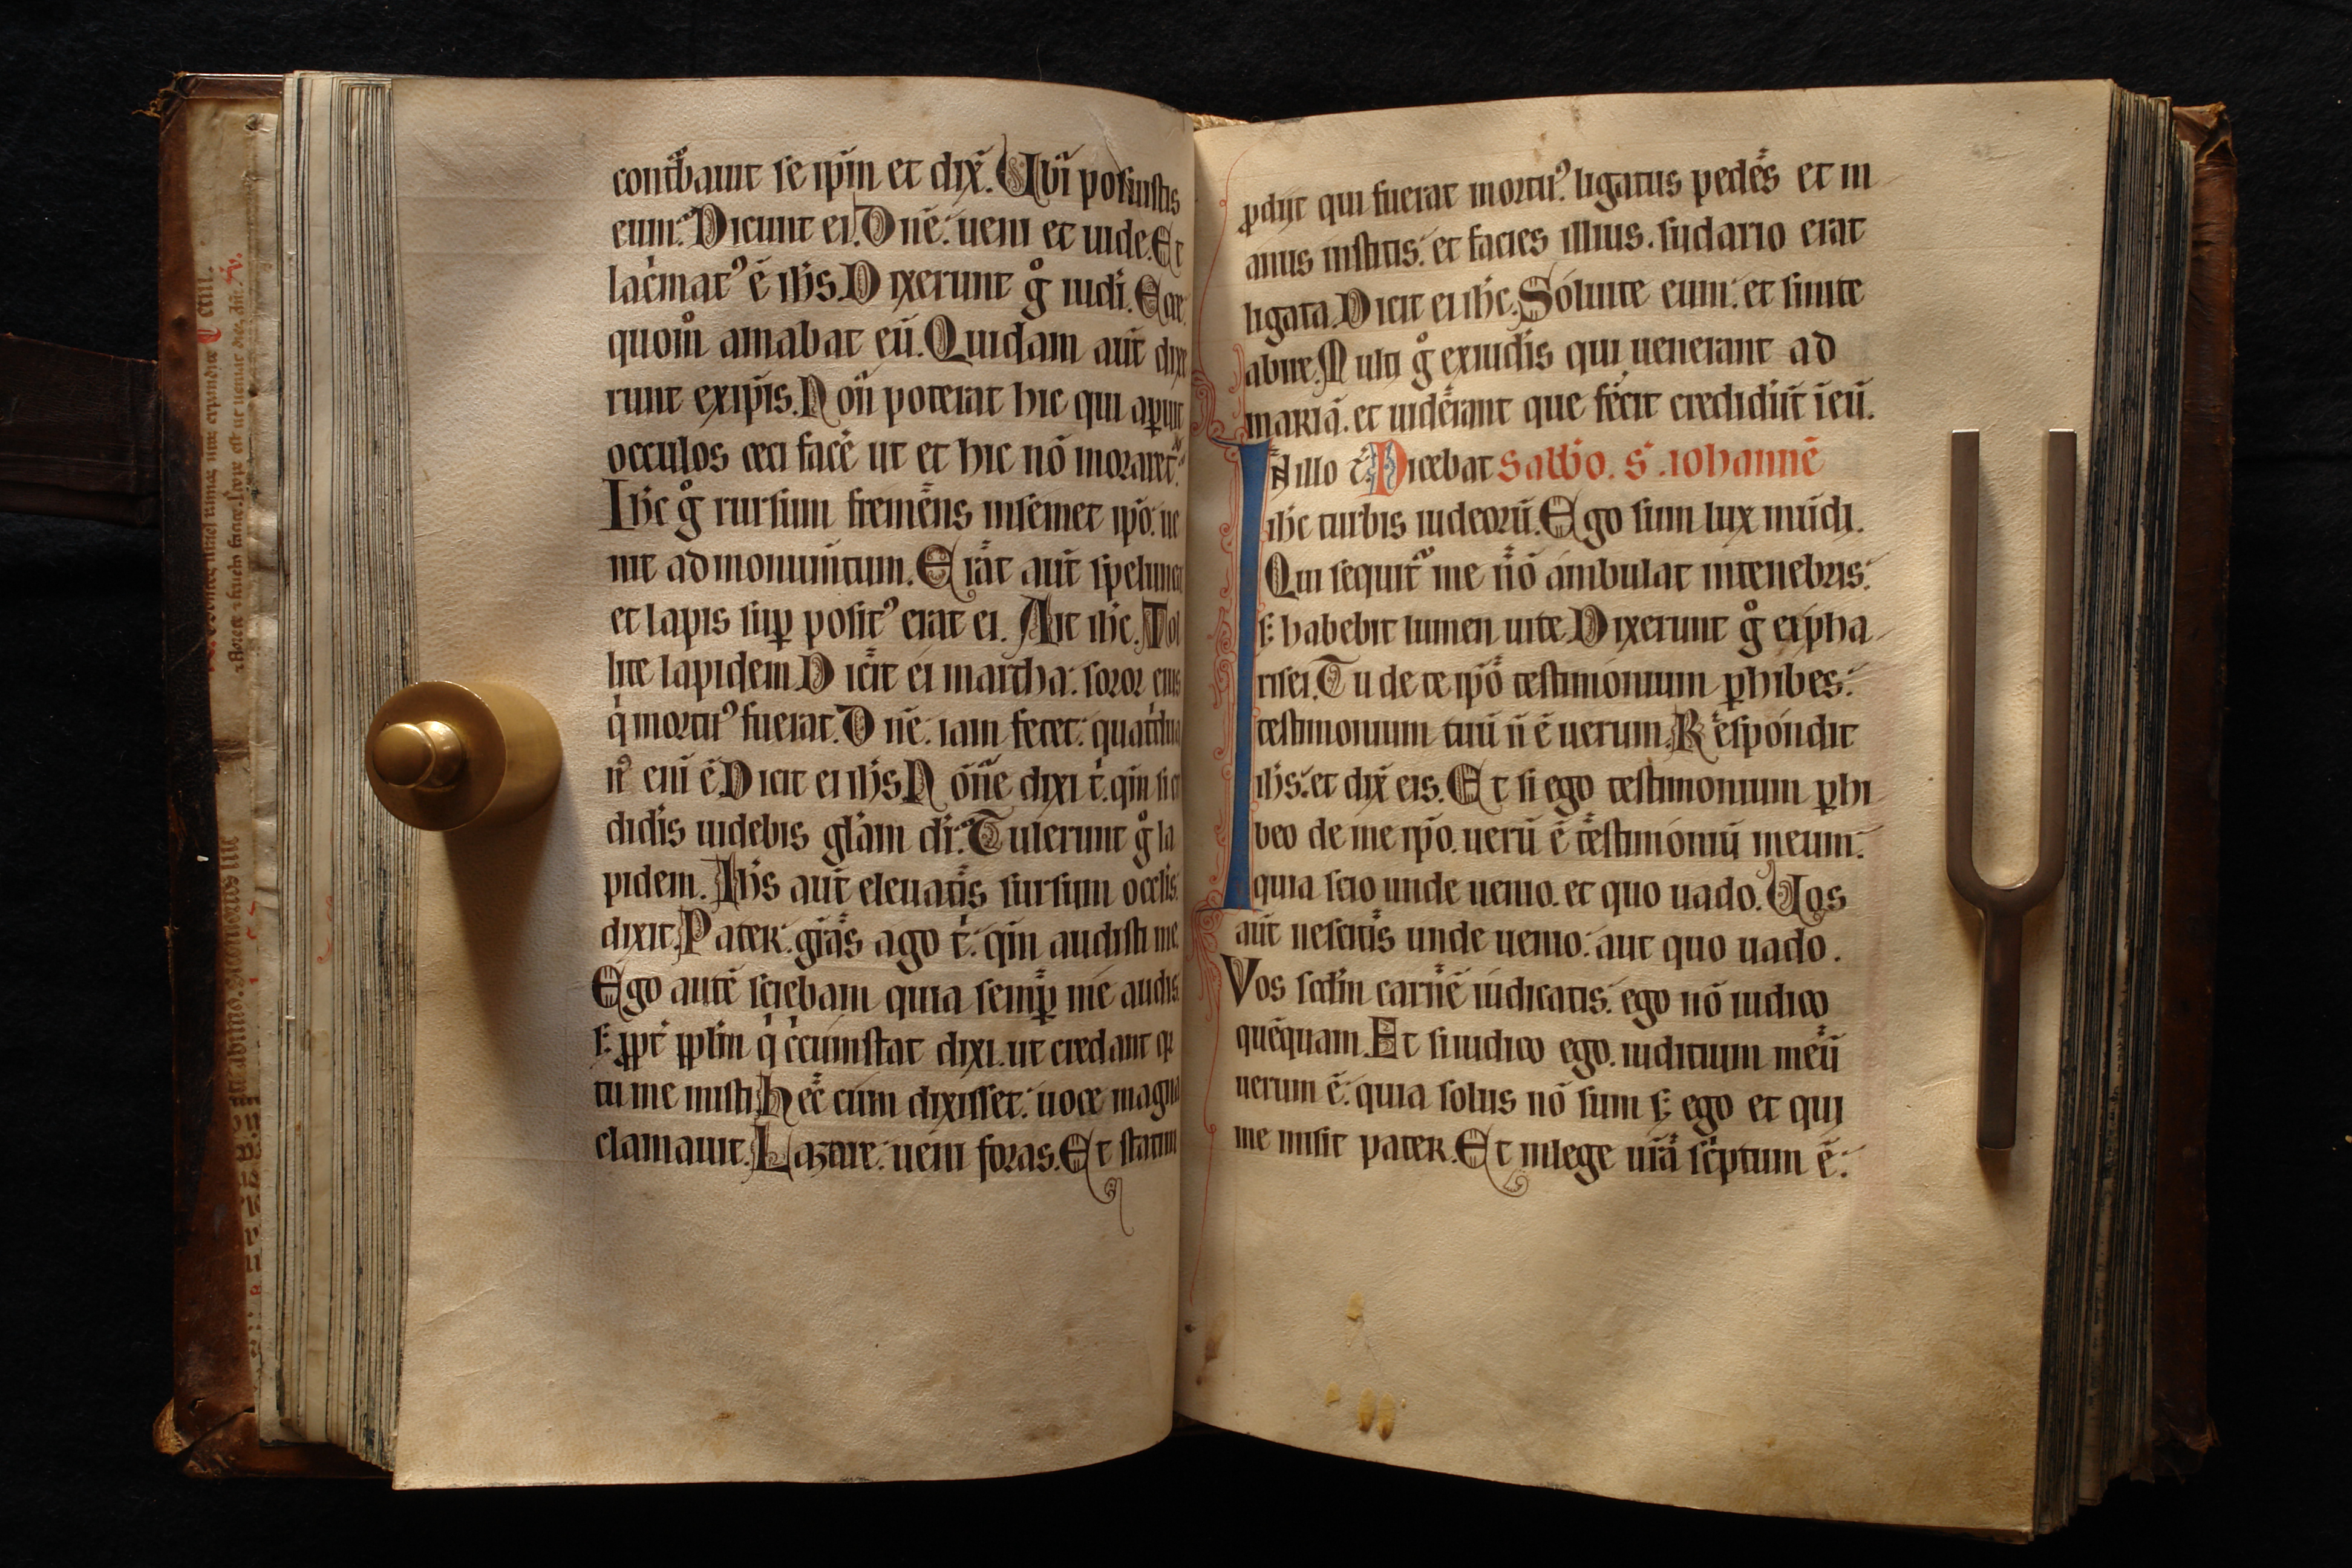 contᷓbauit se ip̄m et dix̄. Ubi posuistis
eum. Dicunt ei. Dn̄e. ueni et uide. Et
lac̍mat᷒ ē ih̄s. Dixerunt g̊ iudi. Ecce
quom̊ amabat eū. Quidam aūt dixe
runt exip̄is. Non̄ poterat hic qui aꝑuit
occulos ceci facē ut et hic nō moraret᷑.
Ih̄c g̊ rursum fremens insemet ip̄o. ue
nit ad monum̄tum. Erat aūt spelunca
et lapis suꝑ posit᷒ erat ei. Ait ih̄c. Tol
lite lapidem. Dicit ei martha. soror eius
q̍ mortu᷒ fuerat. Dn̄e. iam fetet. quat̍dua
n᷒ enī ē. Dicit ei ih̄s. Nōn̄e dixi t̍. qm̄ si cre
didis uidebis gl̄am di. Tulerunt g̊ la
pidem. Ih̄s aūt eleuatis sursum occlis.
dixit. Pater. gr̄as ago t̍. qm̄ audisti me.
Ego autē sciebam quia semꝑ me audis.
s; ꝓpt̄ ppl̄m q̍ c̍cumstat dixi. ut credant qr
tu me misti. Hec cum dixisset. uoce magna
clamauit. Lazare. ueni foras. Et statim
ꝓdijt qui fuerat mortu᷒. ligatus pedes et m
anus institis. et facies illius. sudario erat
ligata. Dicit ei ih̄c. Soluite eum. et sinite
abire. Multi g̊ exiudis qui uenerant ad
mariā. et uiderant que fecit crediderūt ī eū.
In illo t̄. Dicebat Sabbo. S. iohannē
ih̄c turbis iudeorū. Ego sum lux mūdi.
Qui sequit᷑ me nō ambulat intenebris.
s; habebit lumen uite. Dixerunt g̊ ei pha
risei. Tu de te ip̄o testimonium ꝑhibes.
testimonium tuū n̄ ē uerum. Respondit
ih̄s. et dix̄ eis. Et si ego testimonium ꝑhi
beo de me ip̄o. uerū ē testimoniū meum.
quia scio unde uenio. et quo uado. Uos
aūt nescitis unde uenio. aut quo uado.
Vos scd̄m carnē iudicatis. ego nō iudico
quēquam. Et si iudico ego. iuditium meū
uerum ē. quia solus nō sum s; ego et qui
me misit pater. Et inlege ur̄a sc̍ptum ē.